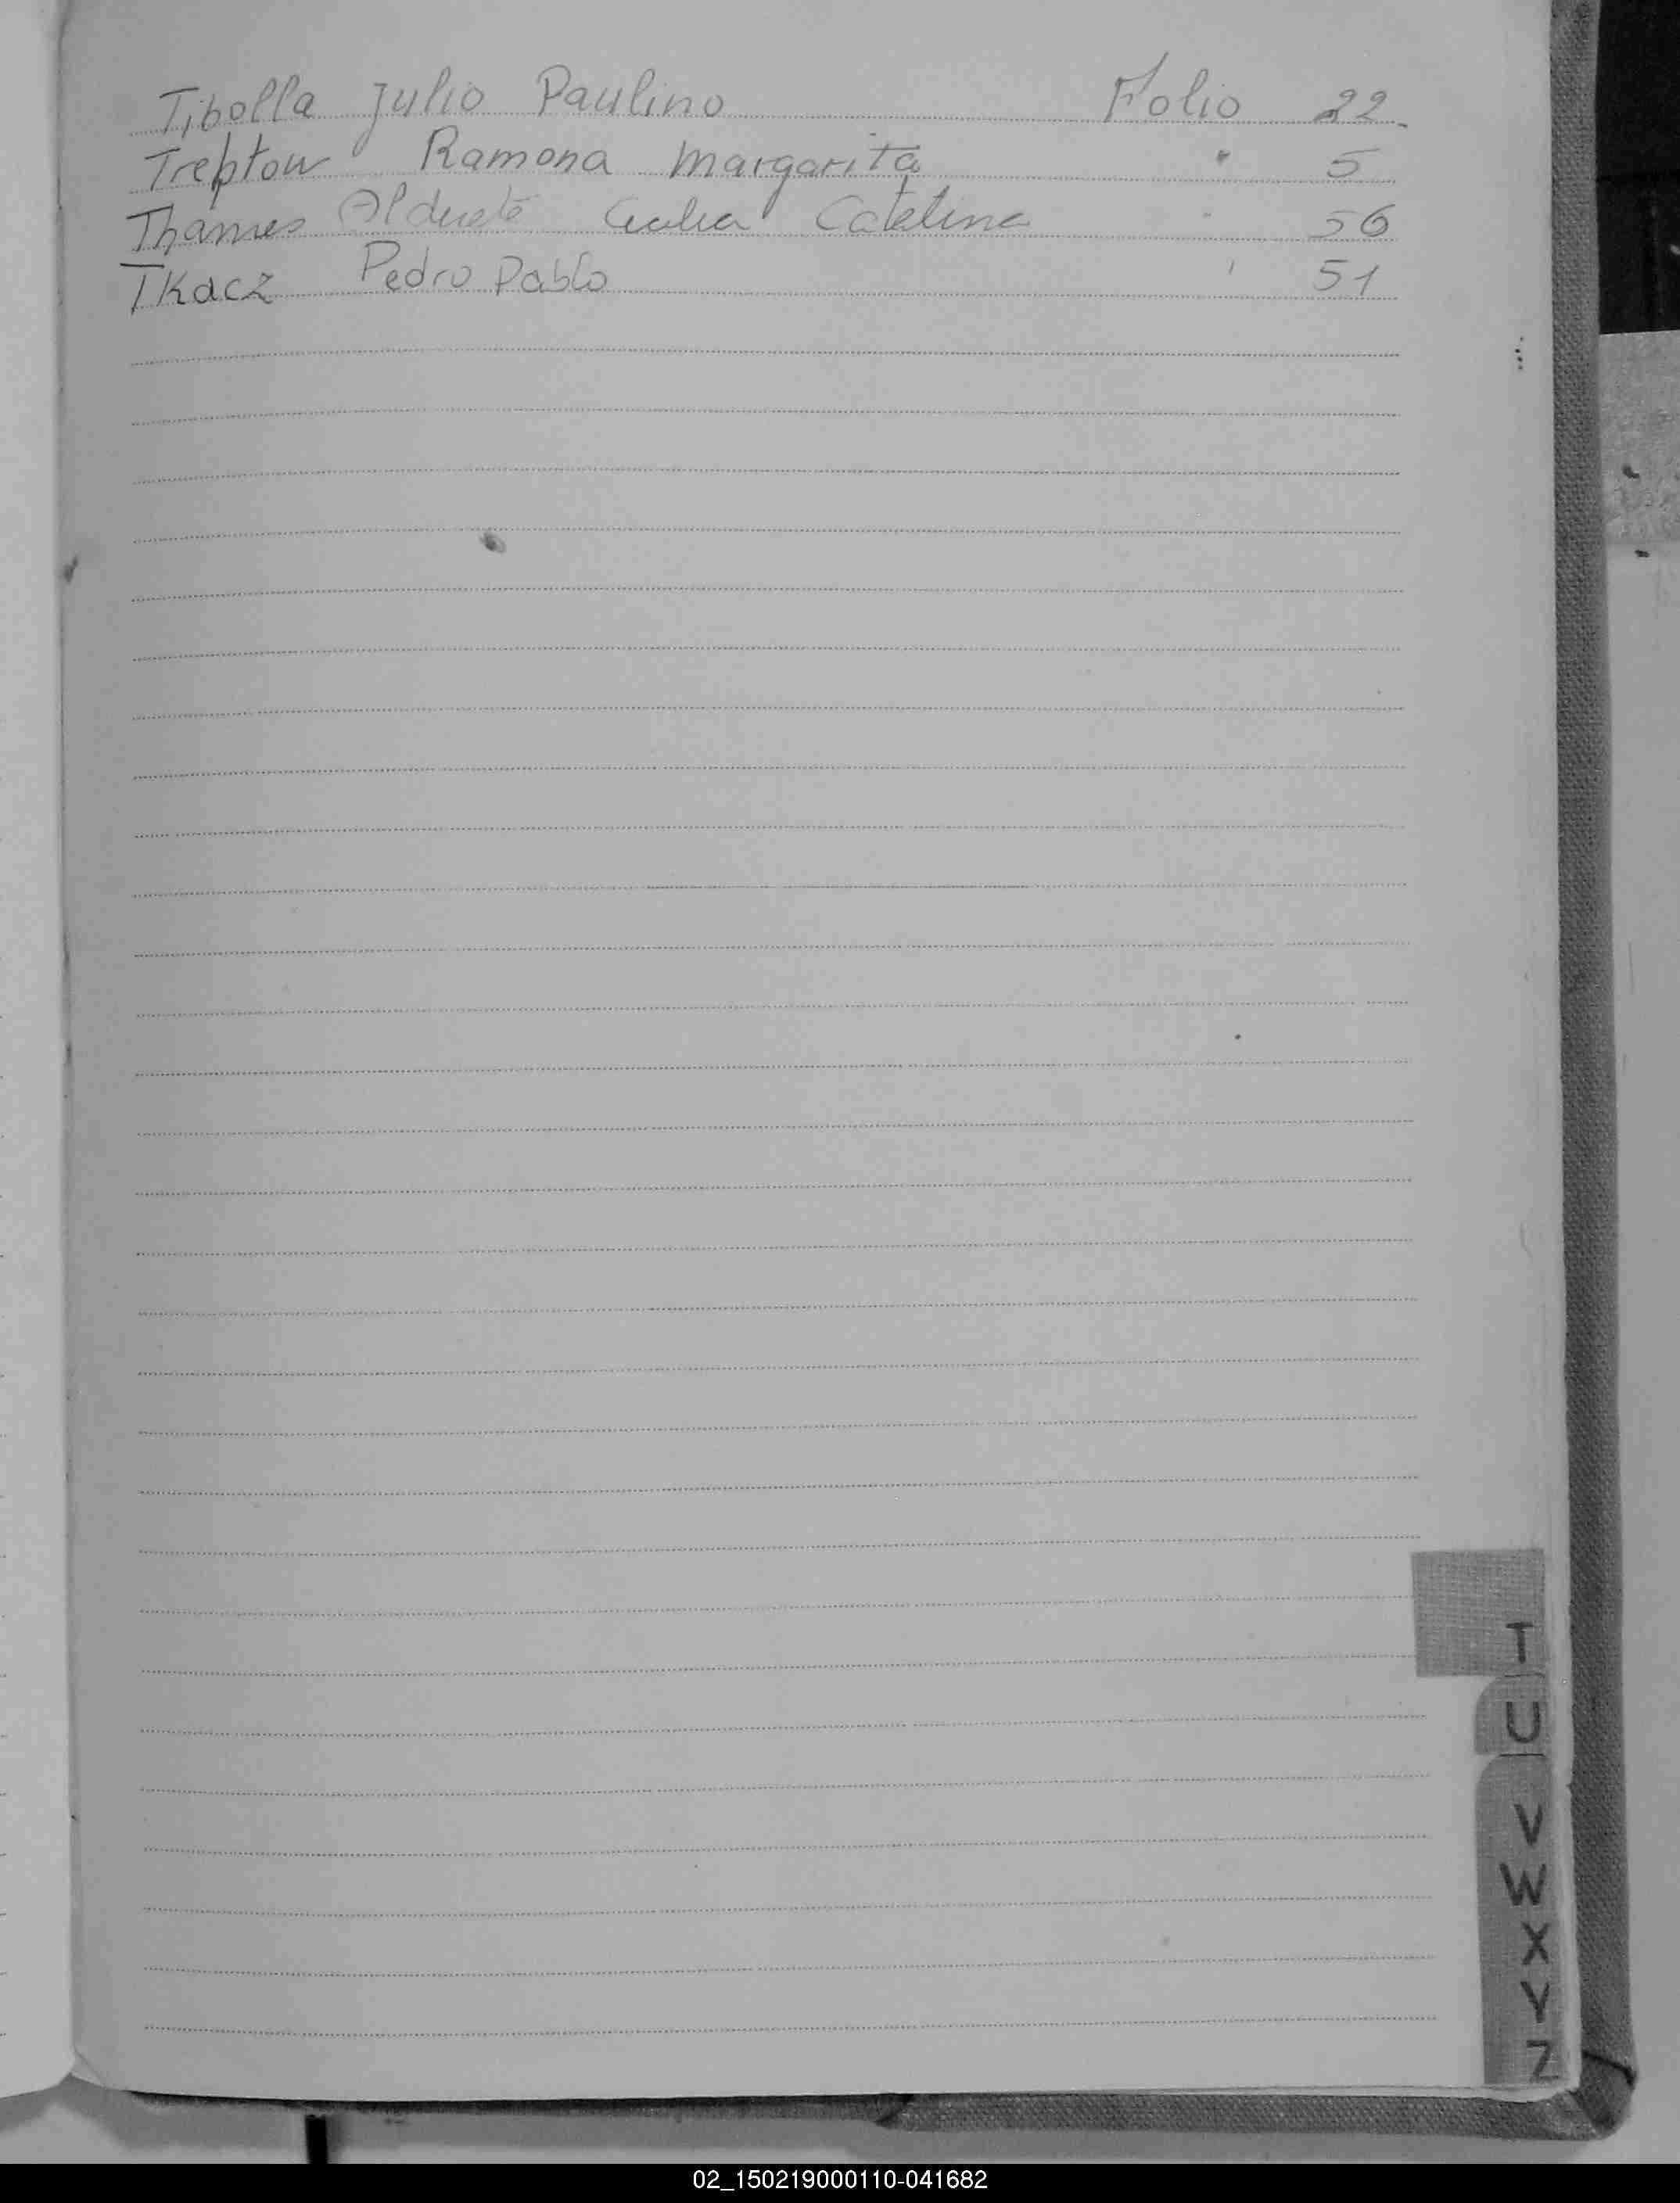 Tibolla Julio Paulino Folio 22.
Treptow Ramona Margarita " 5
Thames Alderete Cecilia Catalina " 56
TKacz Pedro Pablo " 51
T
U
V
W
X
Y
Z
02_150219000110-041682